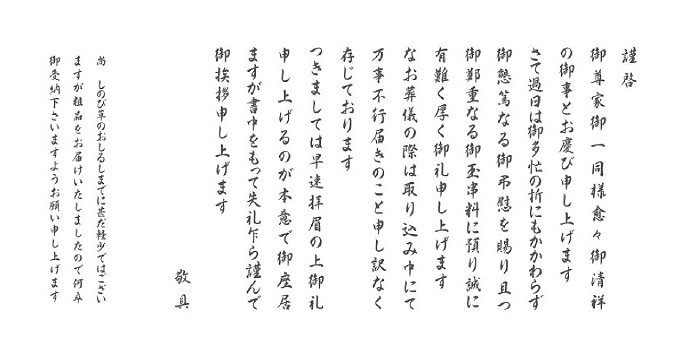 謹啓
御尊家御一同様愈々御清祥
の御事とお慶び申し上げます
さて過日は御多忙の折にもかかわらず
御懇篤なる御弔慰を賜り且つ
御鄭重なる御玉串料に預り誠に
有難く厚く御礼申し上げます
なお葬儀の際は取り込み中にて
万事不行届きのこと申し訳なく
存じております
つきましては早速拝眉の上御礼
申し上げるのが本意で御座居
ますが書中をもって失礼乍ら謹んで
御挨拶申し上げます
敬具
尚 しのび草のおしるしまでに甚だ軽少ではござい
ますが粗品をお届けいたしましたので何卒
御受納下さいますようお願い申し上げます